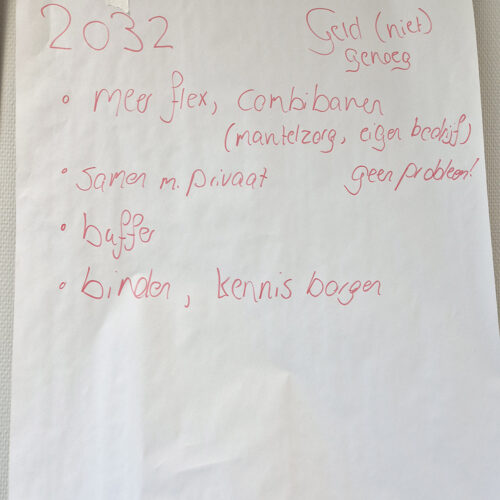 2032
Geld (niet)
genoeg
• meer flex, combibanen
(mantelzorg, eigen bedrijf)
• samen m. privaat
geen probleem!
• buffer
• binden, kennis borgen